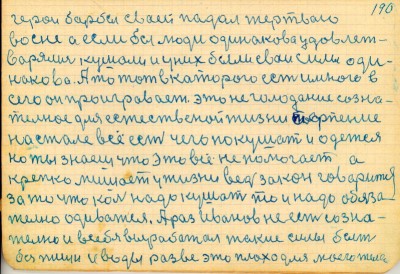 190
герои борбы своей падал жертваго
во сне а если бы люди одинакова удовлет-
варяли кушали и у них были сваи силы оди-
накова. А то тот в каторого ест много в
сего он проиграваэт. это не голодание созна-
телное для естествсной жизни терпение
на столе всё ест чего покушат и одется
но ты знаеш что это всё не помогает а
крепко мишает у жизни вед закон говарит
за то что кол надо кушат то и надо обяза-
телно одиватся. А раз иванов не ест созна-
телно и в себя выработал такие силы быт
без пищи и воды разве это плохо для моего тела